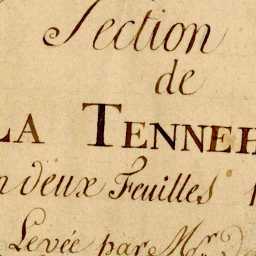 Section
de
LA TENNEH
n deux Feuilles
Levée par Mr.